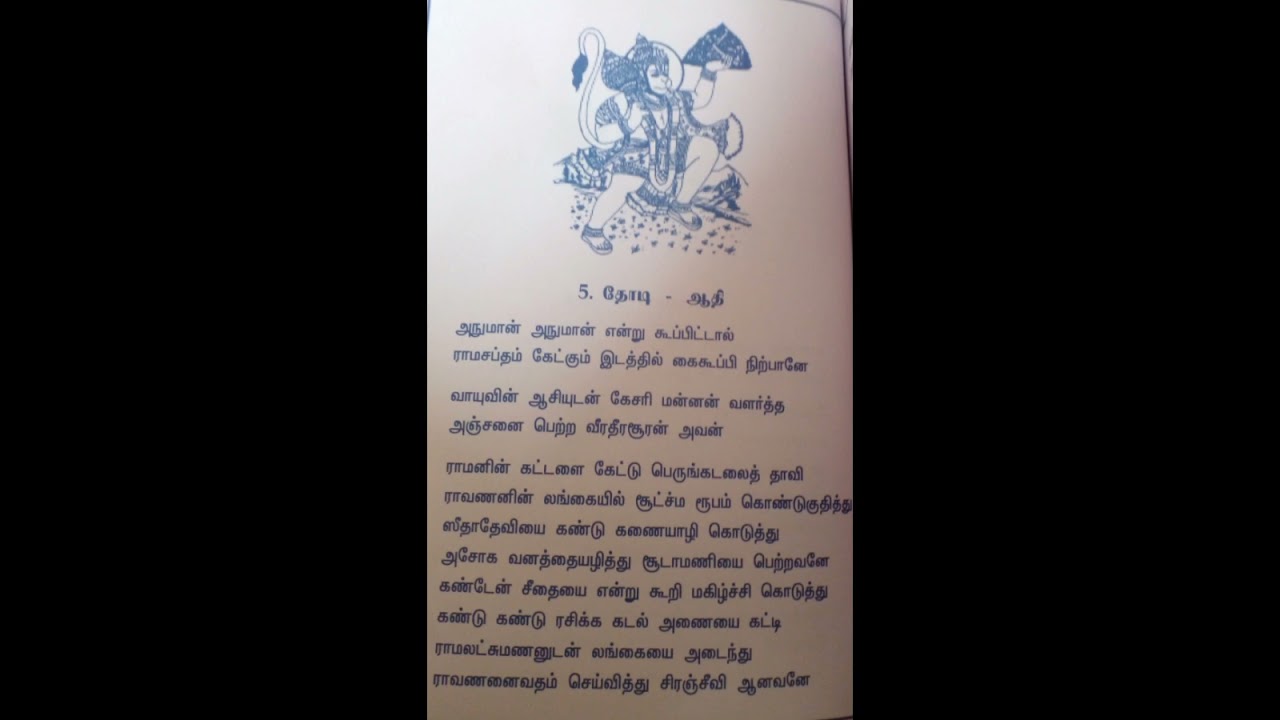 5. தோடி - ஆதி
அநுமான் அநுமான் என்று கூப்பிட்டால்
ராமசப்தம் கேட்கும் இடத்தில் கைகூப்பி நிற்பானே
வாயுவின் ஆசியுடன் கேசரி மன்னன் வளர்த்த
அஞ்சனை பெற்ற வீரதீரசூரன் அவன்
ராமனின் கட்டளை கேட்டு பெருங்கடலைத் தாவி
ராவணனின் லங்கையில் சூட்ச்ம ரூபம் கொண்டுகுதித்து
ஸீதாதேவியை கண்டு கணையாழி கொடுத்து
அசோக வனத்தையழித்து சூடாமணியை பெற்றவனே
கண்டேன் சீதையை என்று கூறி மகிழ்ச்சி கொடுத்து
கண்டு கண்டு ரசிக்க கடல் அணையை கட்டி
ராமலட்சுமணனுடன் லங்கையை அடைந்து
ராவணனைவதம் செய்வித்து சிரஞ்சீவி ஆனவனே